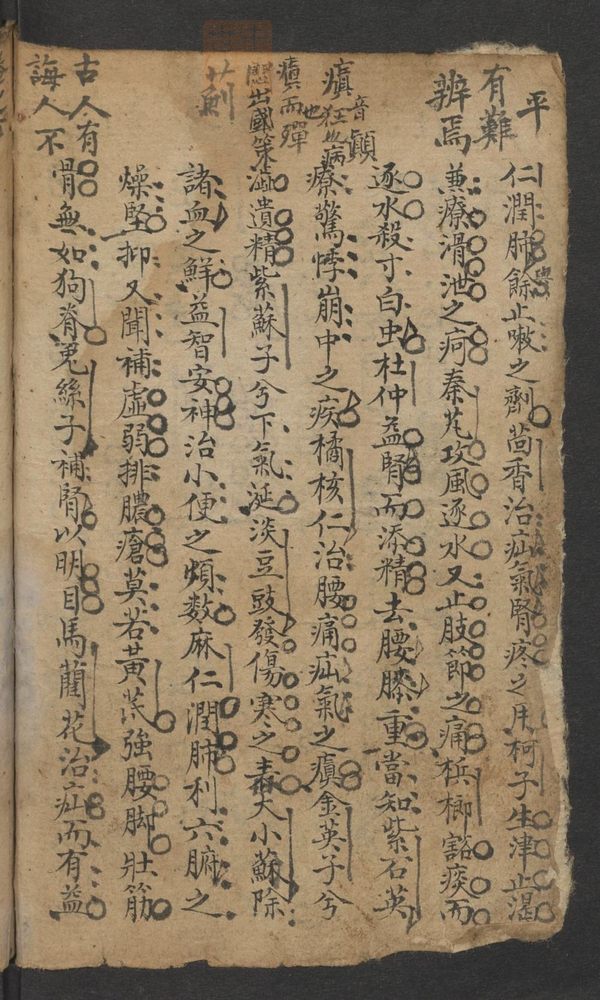 平
有難
辨焉
癲音顛
狂也病也
瘨而殫
悶出國策
薊
古人有
誨人不
仁潤肺餘止嗽之劑茴香治疝氣腎疼之用柯子生津止渴
兼療滑泄之疴秦艽攻風逐水又止肢節之痛梹榔豁痰而
逐水殺寸白虫杜仲益腎而添精去腰膝重當知紫石英
療驚悸崩中之疾橘核仁治腰痛疝氣之癲金英子兮
澁遺精紫蘇子兮下氣涎淡豆豉發傷寒之表大小蘇除
諸血之鮮益智安神治小便之頻數麻仁潤肺利六腑之
燥堅抑又聞補虛弱排膿瘡莫若黃芪強腰脚壯筋
骨無如狗脊兔絲子補腎以明目馬藺花治疝而有益